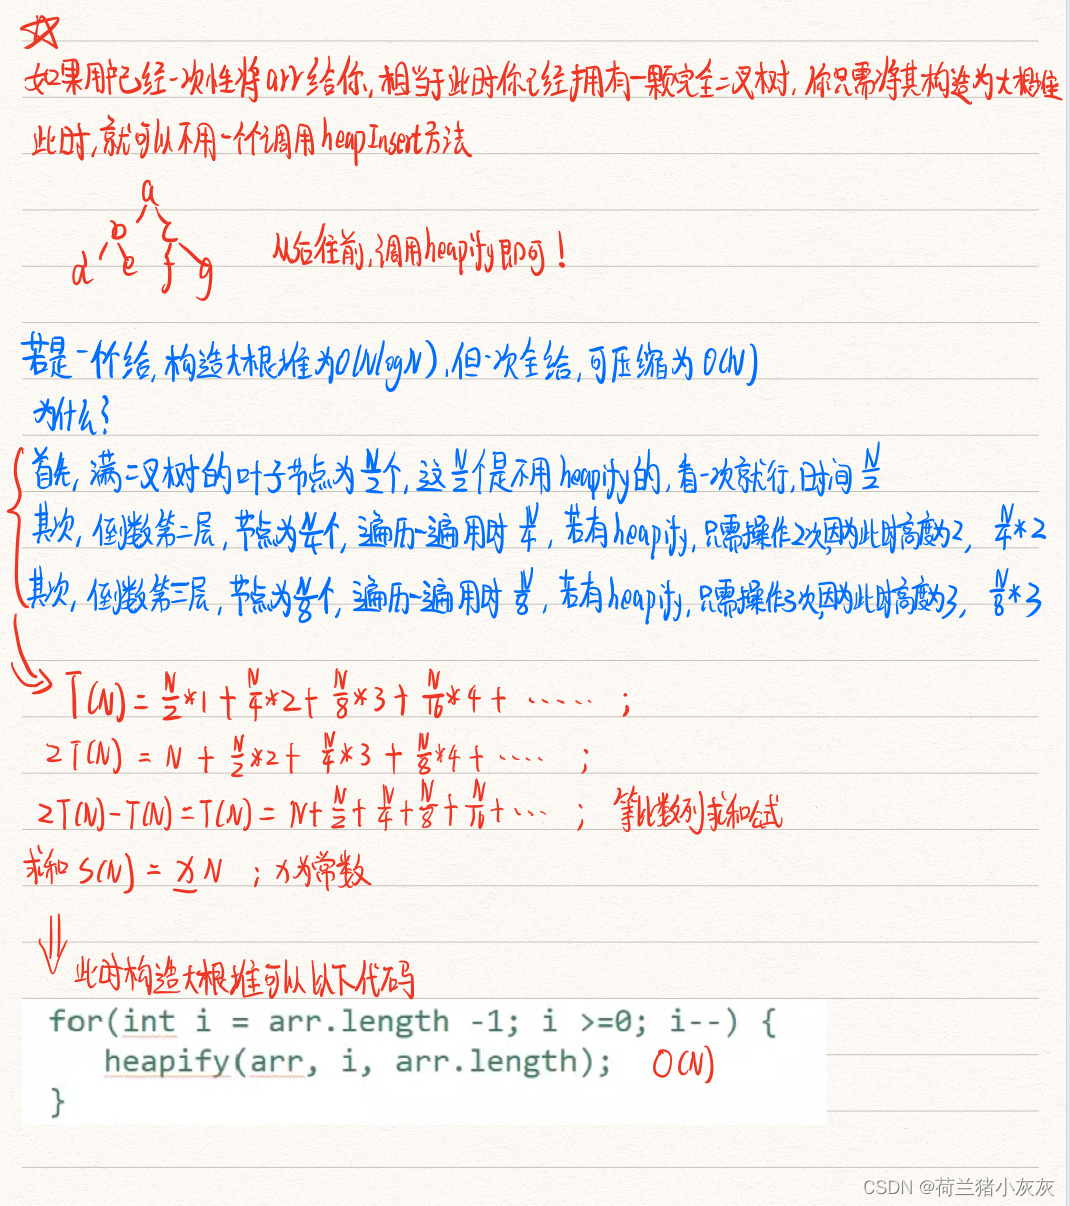 如果用户已经一次性将arr给你,相当于此时你已经拥有一颗完全二叉树,你只需将其构造为大根堆
此时,就可以不用一个个调用heapInsert方法
a
b c
d e f g
从后往前,调用heapify即可!
若是一个个给,构造大根堆为O(NlogN),但一次全给,可压缩为O(N)
为什么?
首先,满二叉树的叶子节点为N/2个,这N/2个是不用heapify的,看一次就行,时间N/2
其次,倒数第二层,节点为N/4个,遍历一遍用时N/4,若有heapify,只需操作2次,因为此时高度为2, N/4*2
其次,倒数第三层,节点为N/8个,遍历一遍用时N/8,若有heapify,只需操作3次,因为此时高度为3, N/8*3
T(N)=N/2*1+N/4*2+N/8*3+N/16*4+ ······ ;
2T(N)=N+N/2*2+N/4*3+N/8*4+ ···· ;
2T(N)-T(N)=T(N)=N+N/2+N/4+N/8+N/16+ ··· ; 等比数列求和公式
求和S(N)=xN ;x为常数
此时构造大根堆可以以下代码
for(int i = arr.length -1; i >=0; i--) {
heapify(arr, i, arr.length); O(N)
}
CSDN @荷兰猪小灰灰